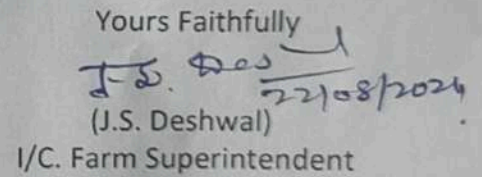 Yours Faithfully
J.S. Des
22/08/2024
(J.S. Deshwal)
I/C. Farm Superintendent